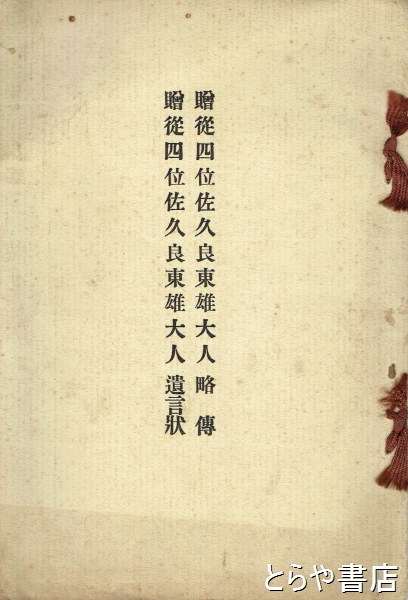 贈從四位佐久良東雄大人略傳
贈從四位佐久良東雄大人遺言狀
とらや書店